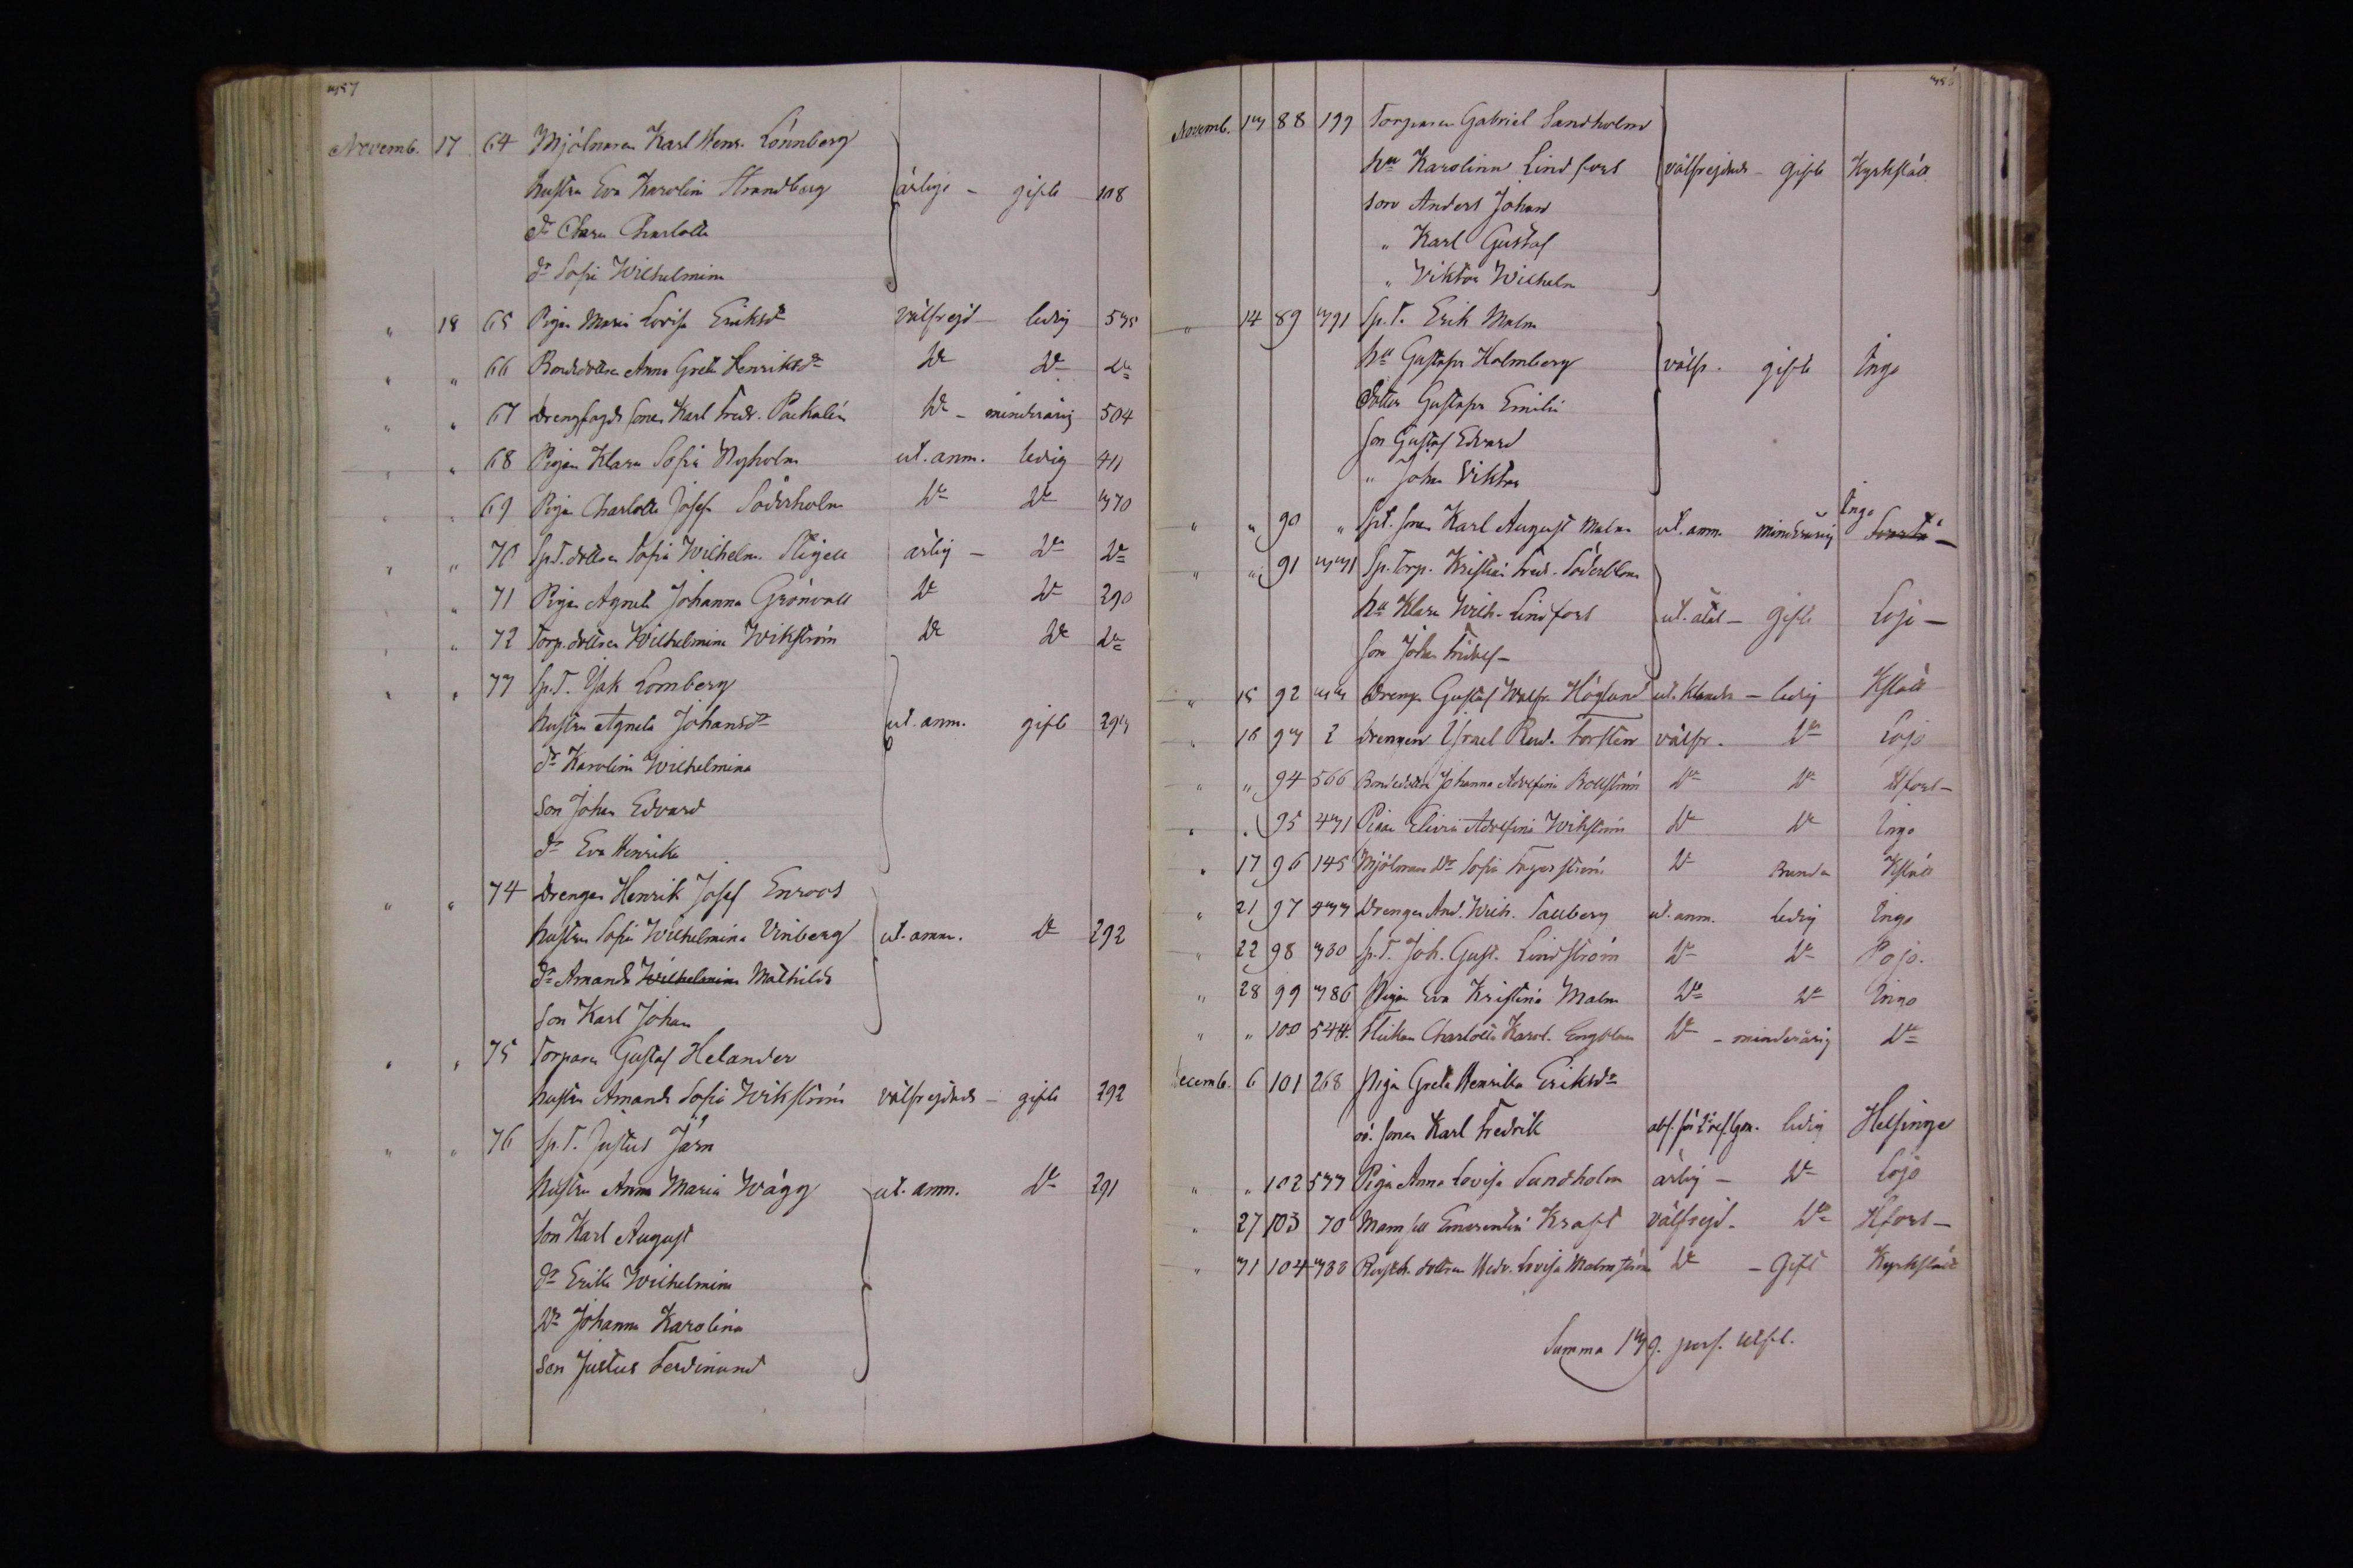 357
Novemb. 17 64 Mjölnaren Karl Henr. Lönnberg
hustru Eva Karolin Strandberg ärlige - gifte 108
dr Clara Charlotta
dr Sofia Wilhelmina
" 18 65 Pigan Maria Lovisa Eriksdr välfrejd - ledig 535
" " 66 Bondedottren Anna Greta Henriksdr Do Do Do
" " 67 Drengfogde sonen Karl Fredr. Do - minderårig 504
" " 68 Pigan Klara Sofia Nyholm ut. anm. ledig 411
" " 69 Pigan Charlotta Josefa Söderholm Do Do 370
" " 70 Sp.T. dottren Sofia Wilhelm. Stigell ärlig - Do Do
" " 71 Pigan Agneta Johanna Grönvall Do Do 290
" " 72 Torp. dottren Wilhelmina Wikström Do Do Do
" " 73 Sp.T. Isak Lomberg
hustru Agneta Johansdr ut. anm. gifte 293
dr Karolina Wilhelmina
Son Johan Edvard
dr Eva Henrika
" " 74 Drengen Henrik Josef Enroos
hustru Sofia Wilhelmina Vinberg ut. anm. Do 292
dr Amanda Wilhelmina Mathilda
Son Karl Johan
" " 75 Torparen Gustaf Helander
hustru Amanda Sofia Wikström välfrejdade - gifte 292
" " 76 Sp.T. Justus Järn
hustru Anna Maria Wägg ut. anm. Do 291
son Karl August
dr Erika Wilhelmina
Dr Johanna Karolina
Son Justus Ferdinand
Novemb. 13 88 199 Torparen Gabriel Sandholm
hu Karolina Lindfors välfrejdade - gifte Kyrkslätt
son Anders Johan
" Karl Gustaf
" Viktor Wilhelm
" 14 89 391 Sp.T. Erik Malm
hu Gustafva Holmberg välfr. gifte Ingo
Dotter Gustafva Emilia
son Gustaf Edvard
" Johan Viktor
" " 90 " Sp.T. sonen Karl August Malm ut. anm. minderårig Ingo
" " 91 331 Sp. Torp. Kristian Fred. Söderblom
hu Klara Wilh. Lindfors gifte Lojo -
son Johan Fridolf -
" 15 92 33 Drengen Gustaf Wolfr. Höglund ut. klander - ledig Kslätt
" 16 93 2 Drengen Israel Forsten välfr. Do Lojo
" " 94 566 Bondedottr Johanna Adolfina Bollström Do Do Hfors -
" " 95 431 Pigan Elivia Adolfina Wikström Do Do Ingo
" 17 96 145 Mjölnare Dr Sofia Fagerström Do Kslätt
" 21 97 433 Drengen And. Wilh. Tallberg ut. anm. ledig Ingo
" 22 98 330 Sp.T. Joh. Gust. Lindström Do Do Pojo.
" 28 99 386 Pigan Eva Kristina Malm Do Do Ingo
" " 100 544. Flickan Charlotta Karol. Engblom Do - minderårig Do
Decemb. 6 101 268 Pigan Greta Henrika Eriksdr
oä. sonen Karl Fredrik ledig Helsinge
" " 102 533 Pigan Anna Lovisa Sundholm ärlig - Do Lojo
" 27 103 70 Mamsell Emerentia Kraft välfrejd. Do Hfors -
" 31 104 333 Rusth. dottren Hedv. Lovisa Malmström Do - Gift Kyrkslätt
Summa 139. pers. utfl.